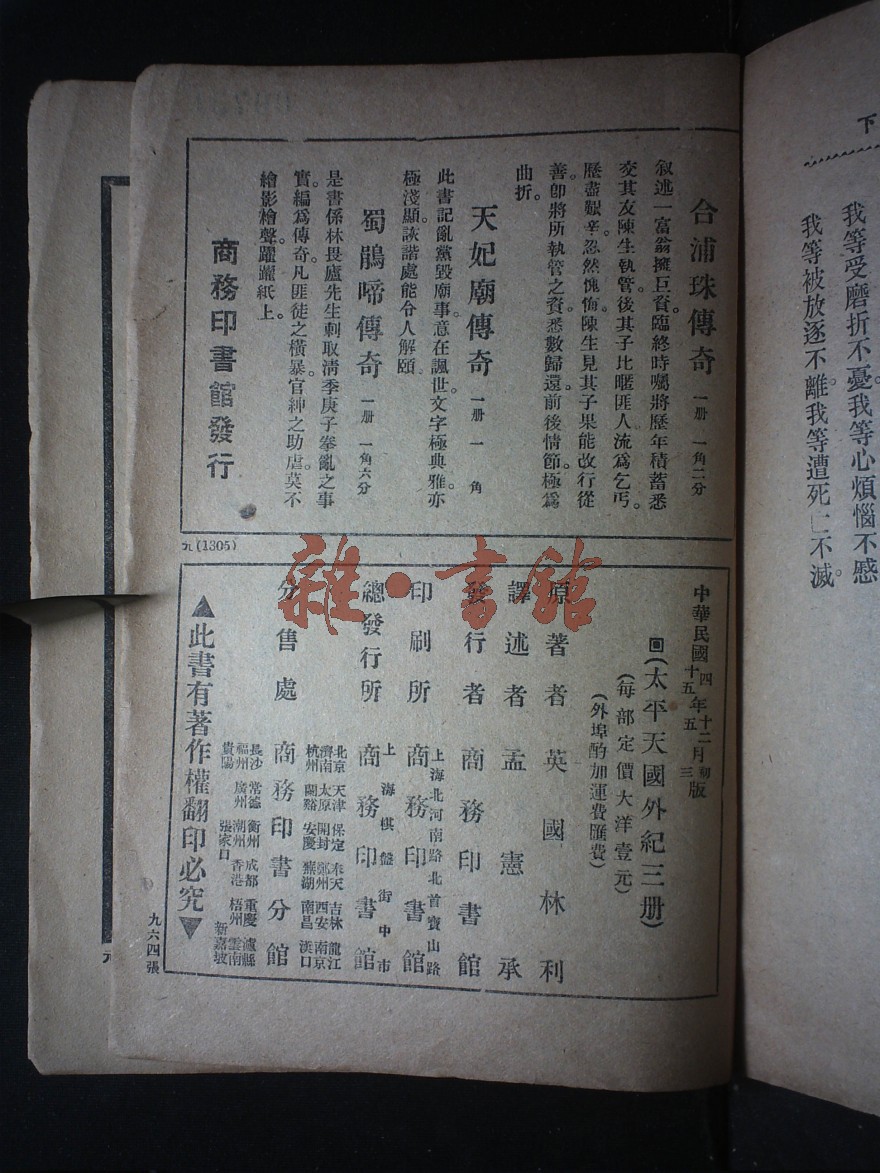 下
我等受磨折不憂。我等心煩惱不感
我等被放逐不離。我等遭死亡不滅
合浦珠傳奇 一册 一角二分
叙述一富翁擁巨資。臨終時囑將歷年積蓄悉
交其友陳生執管。後其子比暱匪人。流爲乞丐。
歷盡艱辛。忽然愧悔。陳生見其子果能改行從
善。卽將所執管之資。悉數歸還。前後情節。極爲
曲折。
天妃廟傳奇 一册 一角
此書記亂黨毀廟事。意在諷世。文字極典雅。亦
極淺顯。詼諧處能令人解頤。
蜀鵑啼傳奇 一册 一角六分
是書係林畏廬先生刺取淸季庚子拳亂之事
實。編爲傳奇。凡匪徒之橫暴。官紳之助虐。莫不
繪影繪聲。躍躍紙上。
商務印書館發行
元(1305)
中華民國四年十二月初版
十五年五月三版
回(太平天國外紀三册)
(每部定價大洋壹元)
(外埠酌加運費匯費)
原著者 英國林利
譯述者 孟憲承
發行者 商務印書館
上海北河南路北首寶山路
印刷所 商務印書館
上海棋盤街中市
總發行所 商務印書館
分售處 商務印書分館
北京 天津 保定 奉天 吉林 龍江
濟南 太原 開封 鄭州 西安 南京
杭州 蘭谿 安慶 蕪湖 南昌 漢口
長沙 常德 衡州 成都 重慶 瀘縣
福州 廣州 潮州 香港 梧州 雲南
貴陽 張家口 新嘉坡
▲此書有著作權翻印必究▼
九六四張
雜·書館